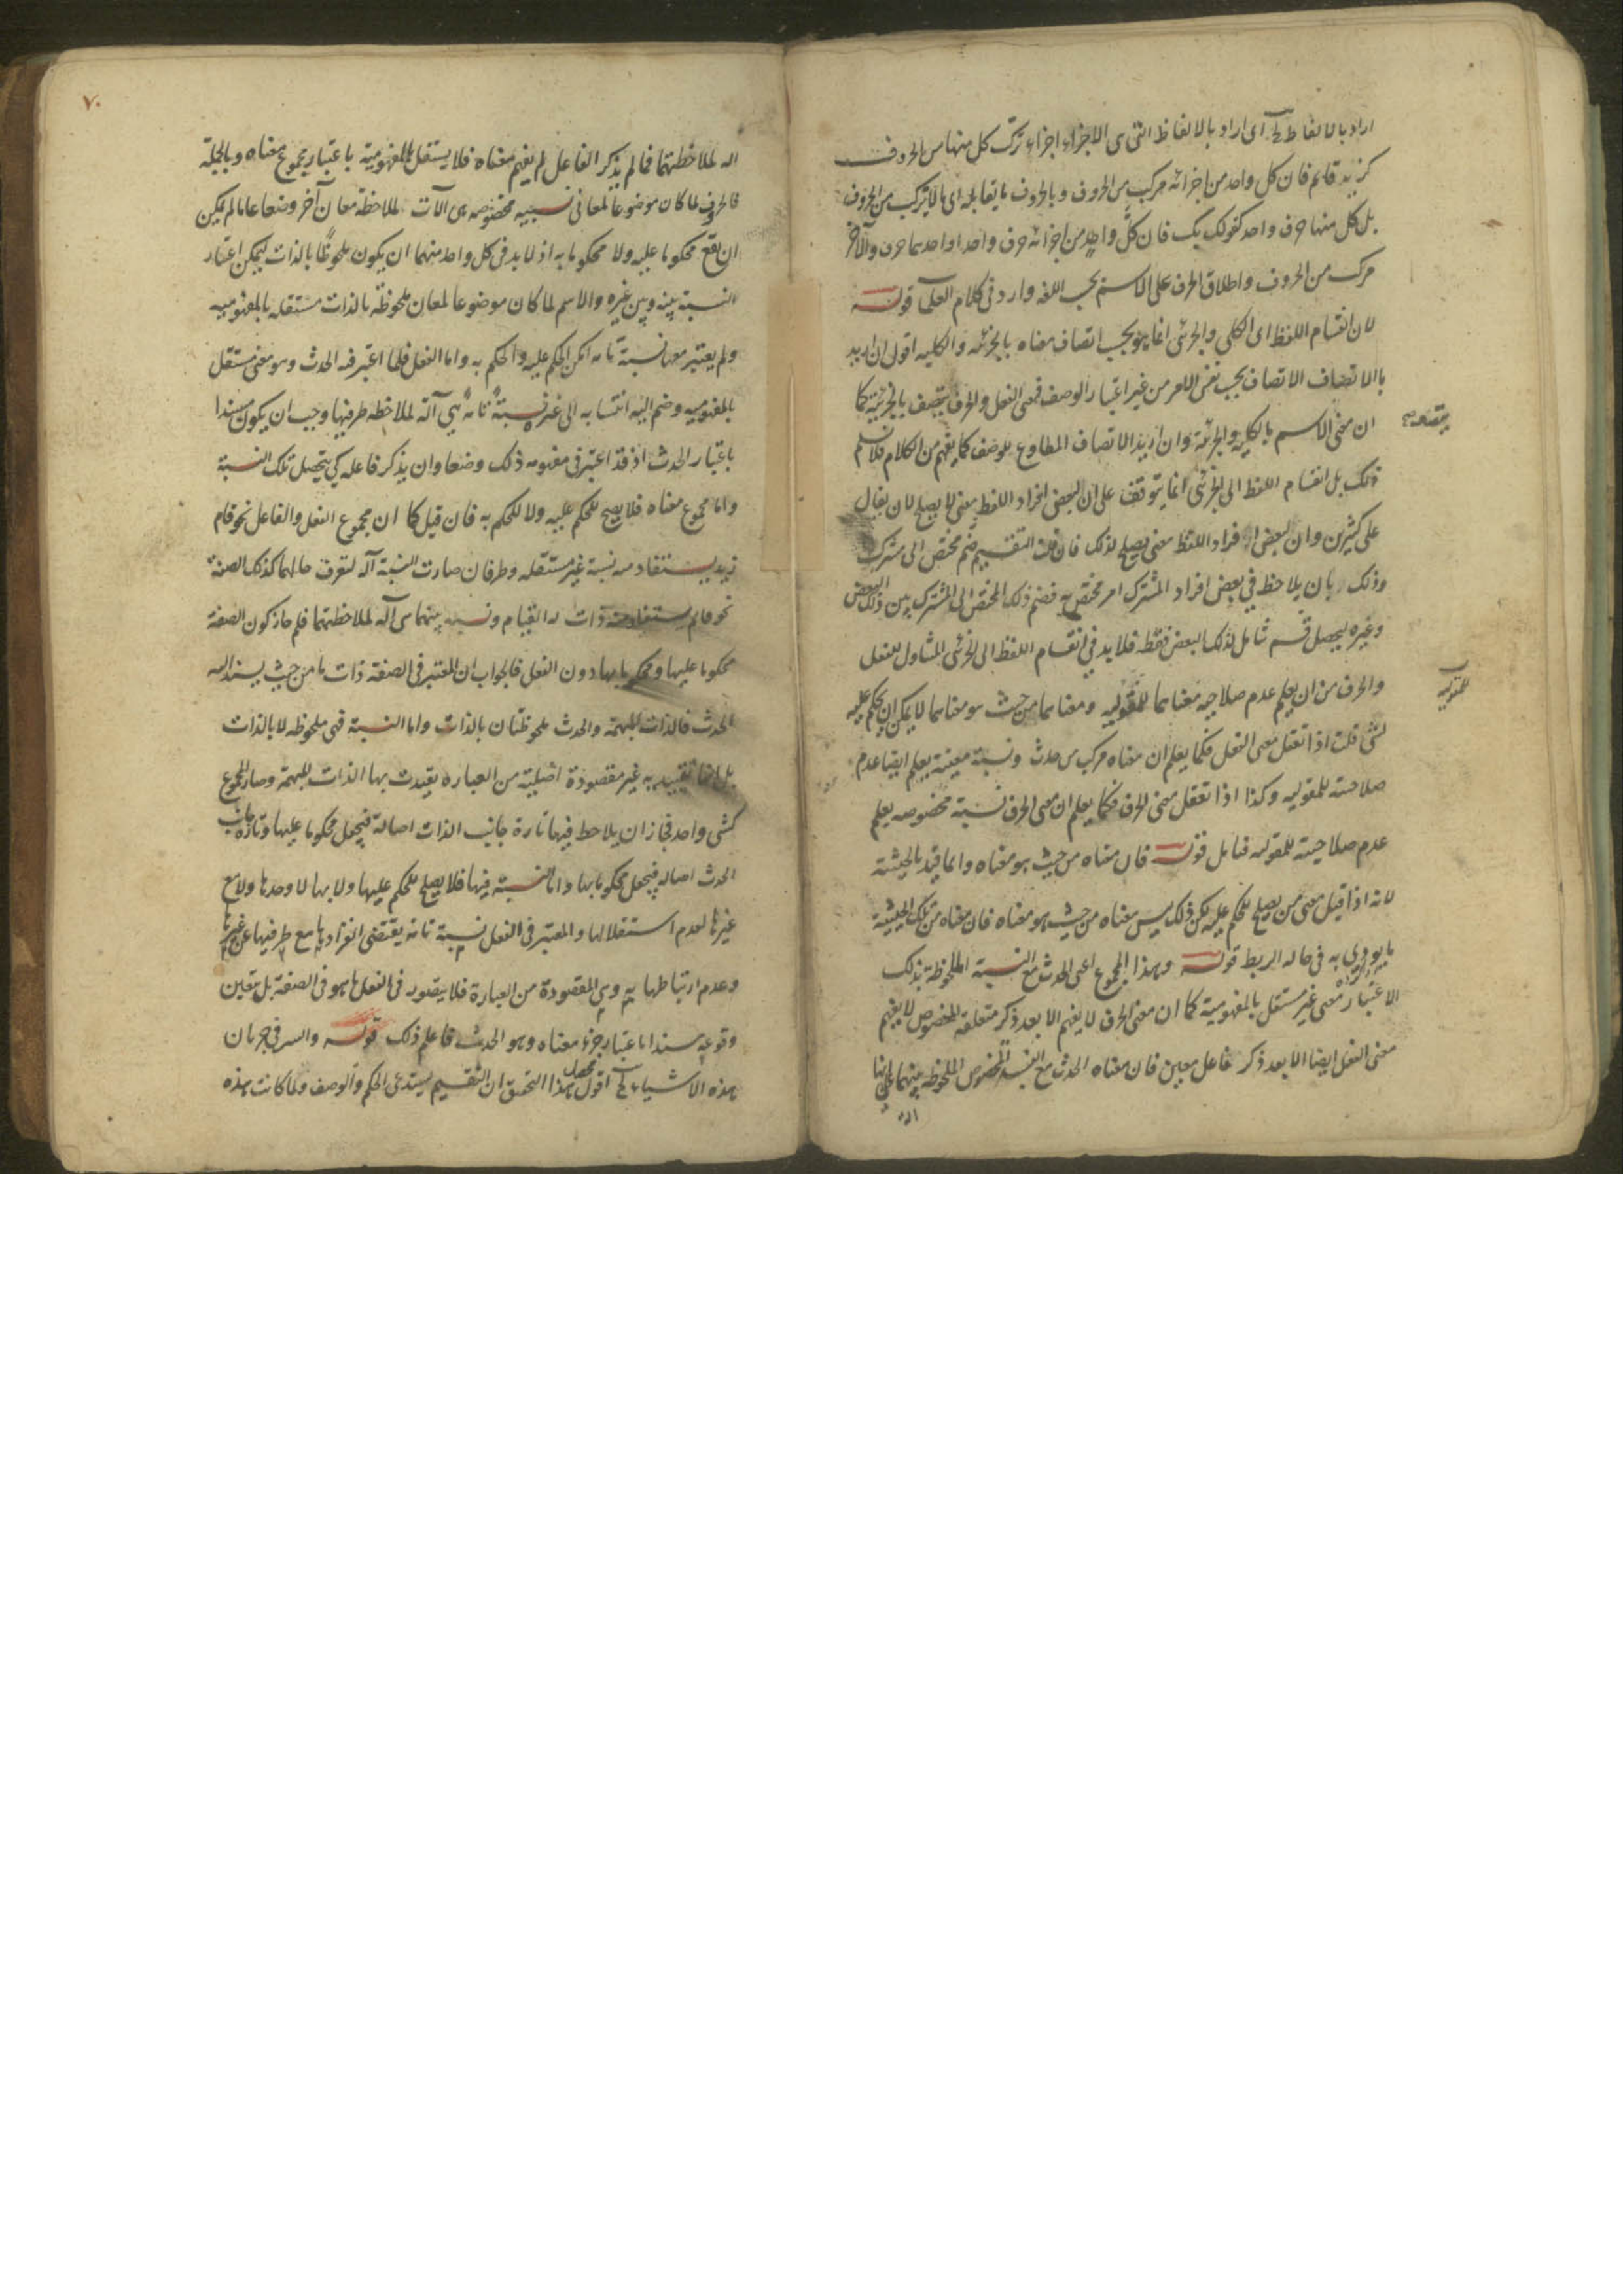 اراد بالالفاظ الخ اى اراد بالالفاظ التى هى الاجزاء اجزاء تركب كل منها من الحروف
كزيد قائم فان كل واحد من اجزائه مركب من الحروف وبالحروف ما يقابله اى ما لا يتركب من الحروف
بل كل منها حرف واحد كقولك بك فان كل واحد من اجزائه حرف واحد او احدهما حرف والآخر
مركب من الحروف واطلاق الحرف على الاسم بحسب اللغه وارد فى كلام العلماء قوله
لان انقسام اللفظ اى الكلى والجزئى انما هو بحسب اتصاف معناه بالجزئيه والكليه اقول ان اريد
بالاتصاف الاتصاف بحسب نفس الامر من غير اعتبار الوصف فمعنى الفعل والحرف يتصف بالجزئية كما
ان معنى الاسم بالكلية والجزئية وان اريد الاتصاف المطاوع للوصف كما يفهم من الكلام فلا نسلم
ذلك بل انقسام اللفظ الى الجزئى انما يتوقف على ان لبعض افراد اللفظ معنى لا يصلح لان يقال
على كثيرين وان لبعض افراد اللفظ معنى يصلح لذلك فان قلت التقسيم ضم مختص الى مشترك
وذلك بان يلاحظ فى بعض افراد المشترك امر مختص به فضم ذلك المختص الى المشترك بين ذلك البعض
وغيره ليحصل قسم شامل لذلك البعض فقط فلا بد فى انقسام اللفظ الى الجزئى المتناول للفعل
والحرف من ان يعلم عدم صلاحية معناهما للمقوليه ومعناهما من حيث هو معناهما لا يمكن ان يحكم عليه
بشئ قلت اذا تعقل معنى الفعل فكما يعلم ان معناه مركب من حدث ونسبة معينة يعلم ايضا عدم
صلاحيته للمقوليه وكذا اذا تعقل معنى الحرف فكما يعلم ان معنى الحرف نسبة مخصوصه يعلم
عدم صلاحيته للمقوليه فتامل قوله فان معناه من حيث هو معناه وانما قيد بالحيثية
لانه اذا قيل معنى من يصلح للحكم عليه لكن ذلك ليس معناه من حيث هو معناه فان معناه من تلك الحيثية
ما يؤدى به فى حاله الربط قوله وهذا المجموع اعنى الحدث مع النسبة الملحوظة بذلك
الاعتبار معنى غير مستقل بالمفهومية كما ان معنى الحرف لا يفهم الا بعد ذكر متعلقه المخصوص لا يفهم
معنى الفعل ايضا الا بعد ذكر فاعل معين فان معناه الحدث مع النسبة المخصوص الملحوظه بينهما على انها
آلة
للمقوليه
٧٠
اله لملاحظتهما فما لم يذكر الفاعل لم يفهم معناه فلا يستقل بالمفهومية باعتبار مجموع معناه وبالجملة
فالحرف لما كان موضوعا لمعانى نسبيه مخصوصه هى الآت لملاحظة معان آخر وضعا عاما لم يمكن
ان يقع محكوما عليه ولا محكوما به اذ لا بد فى كل واحد منهما ان يكون ملحوظا بالذات ليمكن اعتبار
النسبة بينه وبين غيره والاسم لما كان موضوعا لمعان ملحوظة بالذات مستقله بالمفهوميه
ولم يعتبر معها نسبة تامه امكن الحكم عليه والحكم به واما الفعل فلما اعتبر فيه الحدث وهو معنى مستقل
بالمفهوميه وضم اليه انتسابه الى غيره نسبة تامة هى آلة لملاحظه طرفيها وجب ان يكون مسندا
باعتبار الحدث اذ قد اعتبر فى مفهومه ذلك وضعا وان يذكر فاعله كى يتحصل تلك النسبة
واما مجموع معناه فلا يصلح للحكم عليه ولا للحكم به فان قيل كما ان مجموع الفعل والفاعل نحو قام
زيد يستفاد منه نسبة غير مستقله وطرفان صارت النسبة آلة لتعرف حالهما كذلك الصفة
نحو قائم يستفاد منه ذات له القيام ونسبه بينهما هى آلة لملاحظتهما فلم جاز كون الصفة
محكوما عليها ومحكوما بها دون الفعل فالجواب ان المعتبر فى الصفة ذات ما من حيث يسند اليه
الحدث فالذات المبهمة والحدث ملحوظتان بالذات واما النسبة فهى ملحوظه لا بالذات
بل انها تقييديه غير مقصودة اصلية من العباره بقيدت بها الذات المبهمة وصار المجموع
كشى واحد فجاز ان يلاحظ فيها تارة جانب الذات اصالة فيجعل محكوما عليها وتارة جانب
الحدث اصاله فيجعل محكوما بها واما النسبة فيها فلا يصلح للحكم عليها ولا بها لا وحدها ولا مع
غيرها لعدم استقلالها والمعتبر فى الفعل نسبة تامه يقتضى انفرادها مع طرفيها عن غيرها
وعدم ارتباطها به وهى المقصودة من العبارة فلا يتصور فى الفعل ما هو فى الصفة بل يتعين
وقوعه مسندا باعتبار جزء معناه وهو الحدث فاعلم ذلك قوله والسر فى جريان
هذه الاشياء الخ اقول محصل هذا التحقيق ان التقسيم يستدعى الحكم والوصف ولما كانت هذه